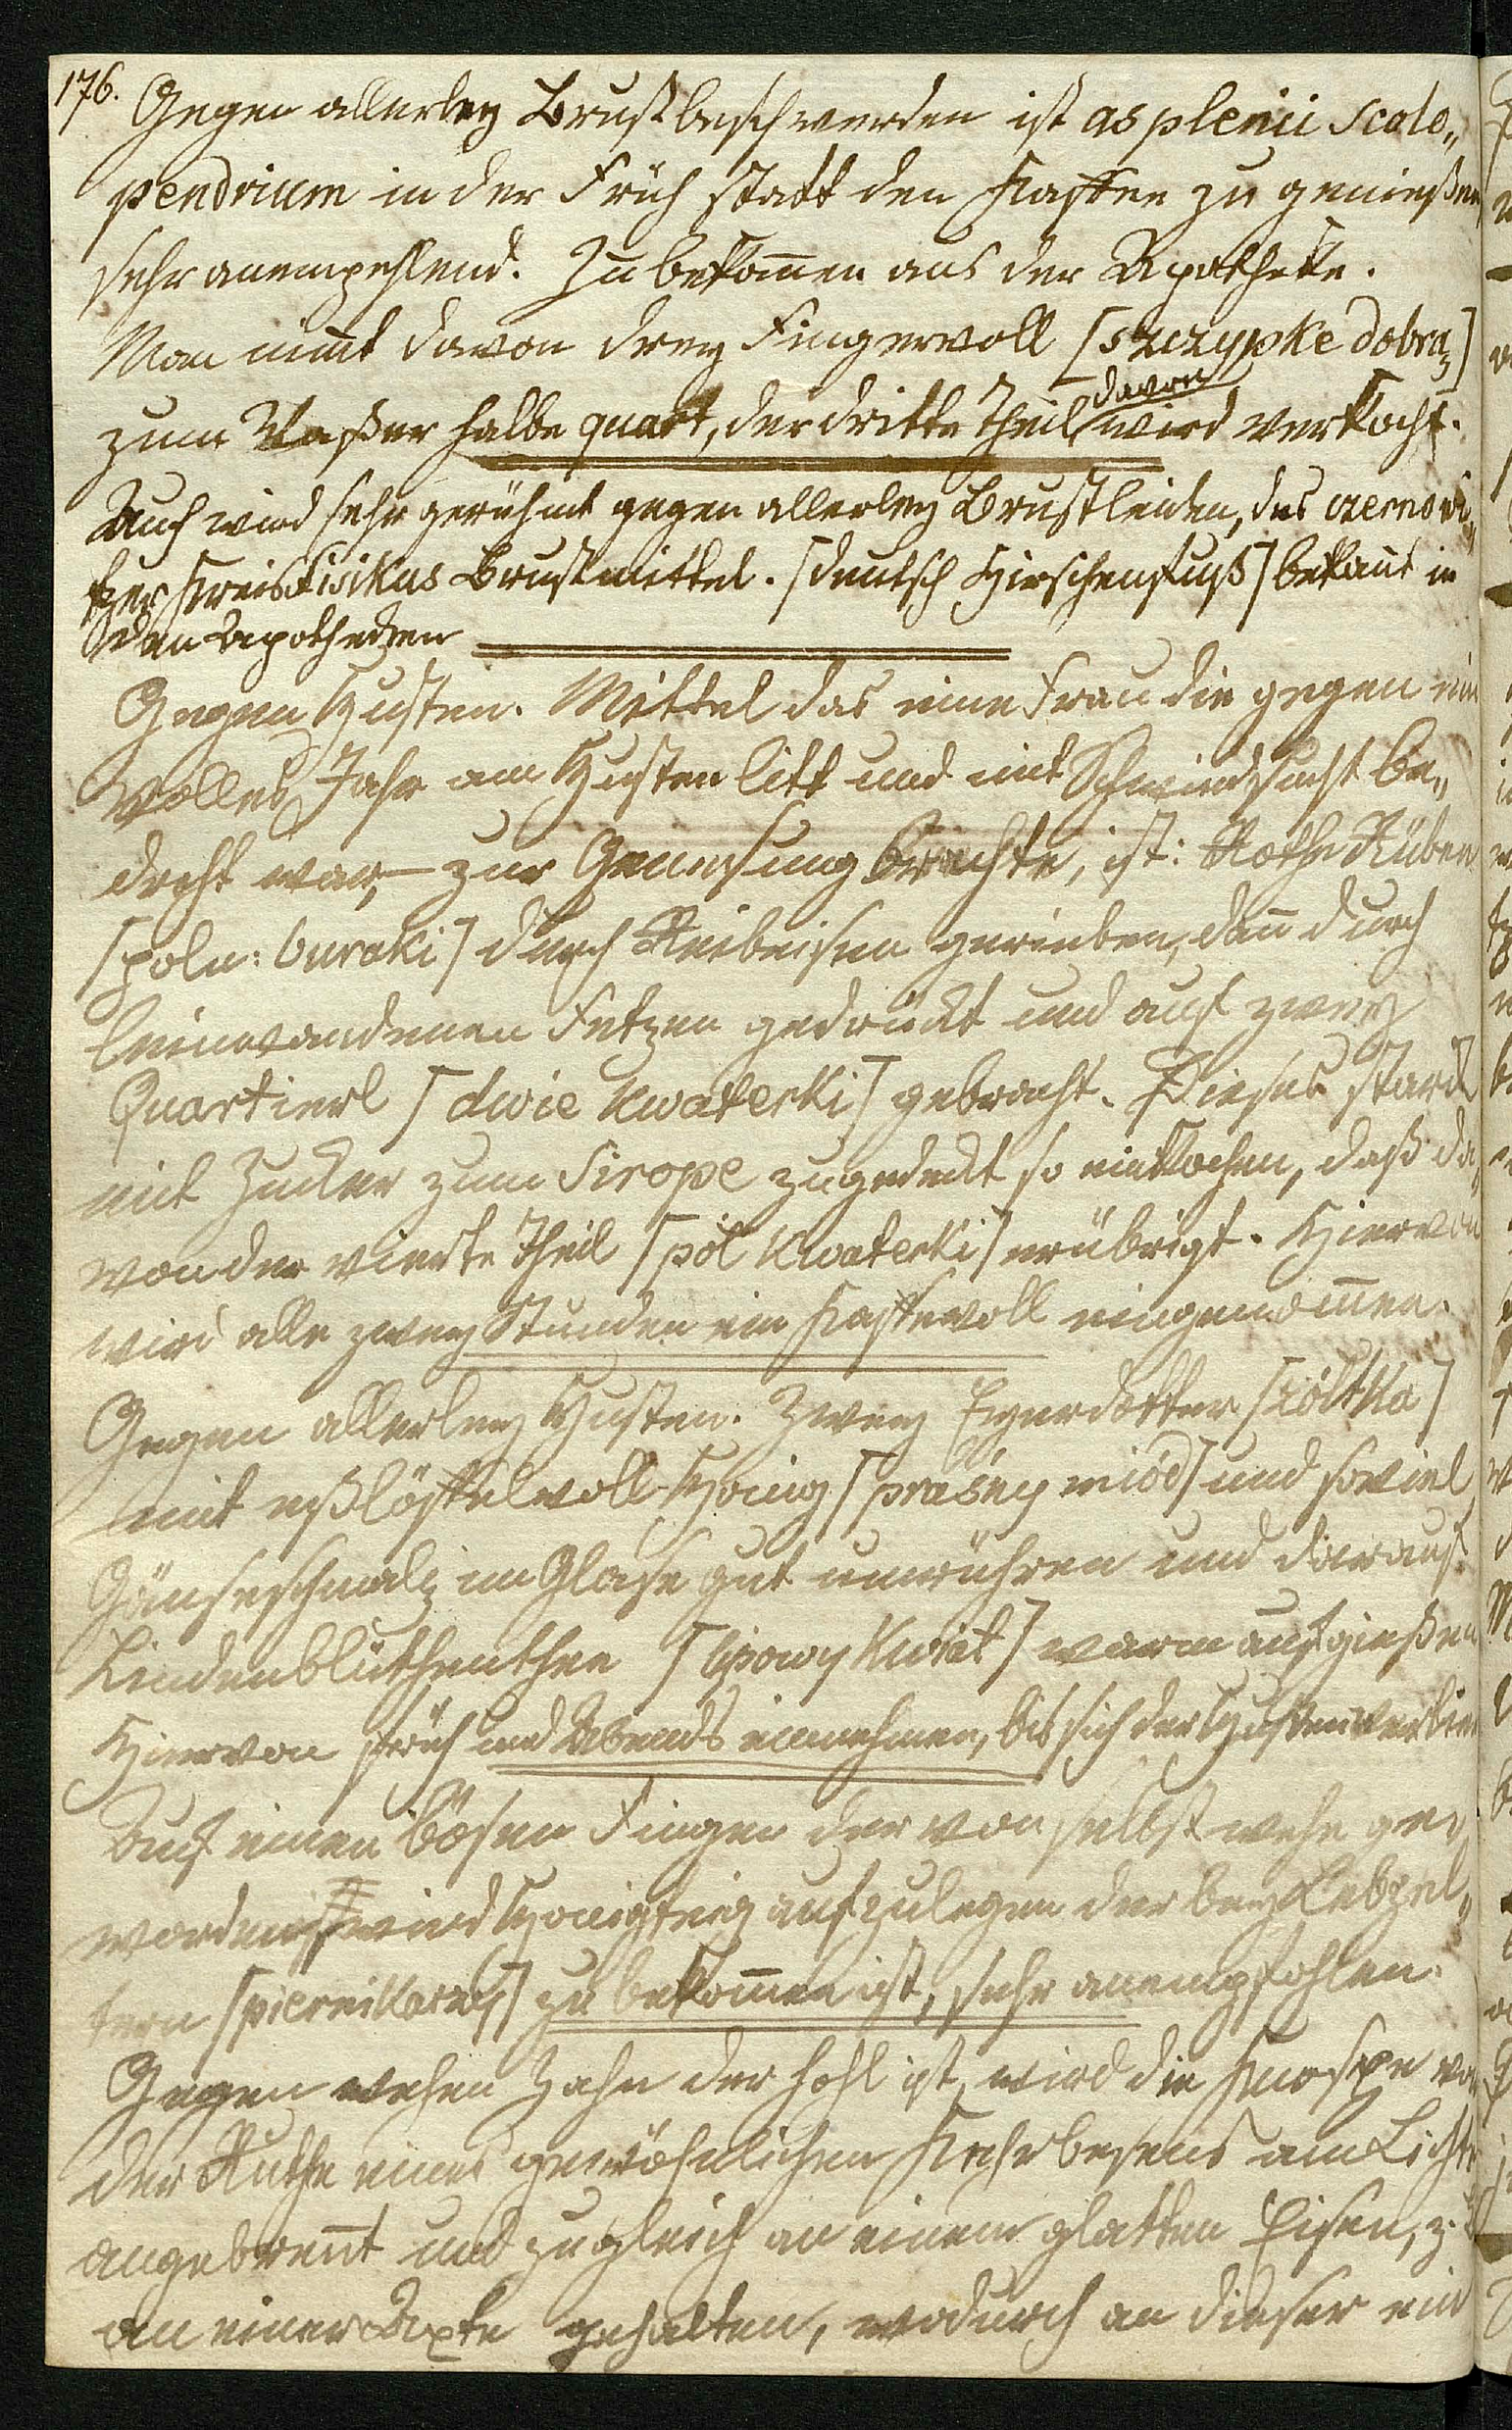 176.
Gegen allerley Brustbeschwerden ist asplenii scolo„
pendrium in der Früh statt den Kaffee zu genießen
sehr anempehlend. Zu bekom̄en aus der Apotheke.
Man nim̄t davon drey Fingervoll [szczypke dobrą]
davon
zum Waßer halbe quart, der dritte Theil wird verkocht.
Auch wird sehr gerühmt gegen allerley Brustleiden, des czernowi„
tzer Kreisfisikus Brustmittel. [deutsch Hirschenfuß] bekan̄t in
den Apotheken
Gegen Husten. Mittel das eine Frau die gegen ein
volles Jahr am Husten litt und mit Schwindsucht be„
droht war, – zur Genesung brachte, ist: Rothe Rüben
[poln: buraki] durch Reibeisen gerieben, dan̄ durch
leinwandenen Fetzen gedrückt und auf zwey
Quartierl [dwie kwaterki] gebracht. Dieses stark
mit Zucker zum Sirope zugedeckt so einkochen, daß da„
von der vierte Theil [pół kwaterki] erübrigt. Hiervon
wird alle zwey Stunden ein Kaffevoll eingenom̄en.
Gegen allerley Husten. Zwey Eyerdotter [żółtka]
mit eßlöffelvoll Honig [praśny miód] und soviel
Gänseschmalz im Glase gut umrühren und darauf
Lindenblüthenthee [lipowy kwiat] warm aufgießen
Hiervon früh und Abends einnehmen, bis sich der Husten verlier
Auf einen bösen Finger der von selbst wehe ge„
worden ist wird Honigteig aufzulegen der bey Lebzel„
tern [piernikarzy] zu bekom̄en ist, sehr anempfohlen.
Gegen wehen Zahn der hohl ist, wird die Knospe von
der Ruthe eines gewöhnlichen Kehrbesens am Lichte
angebren̄t und zugleich an einem glatten Eisen, z.
an einer Axte gehalten, wodurch an dieser ein